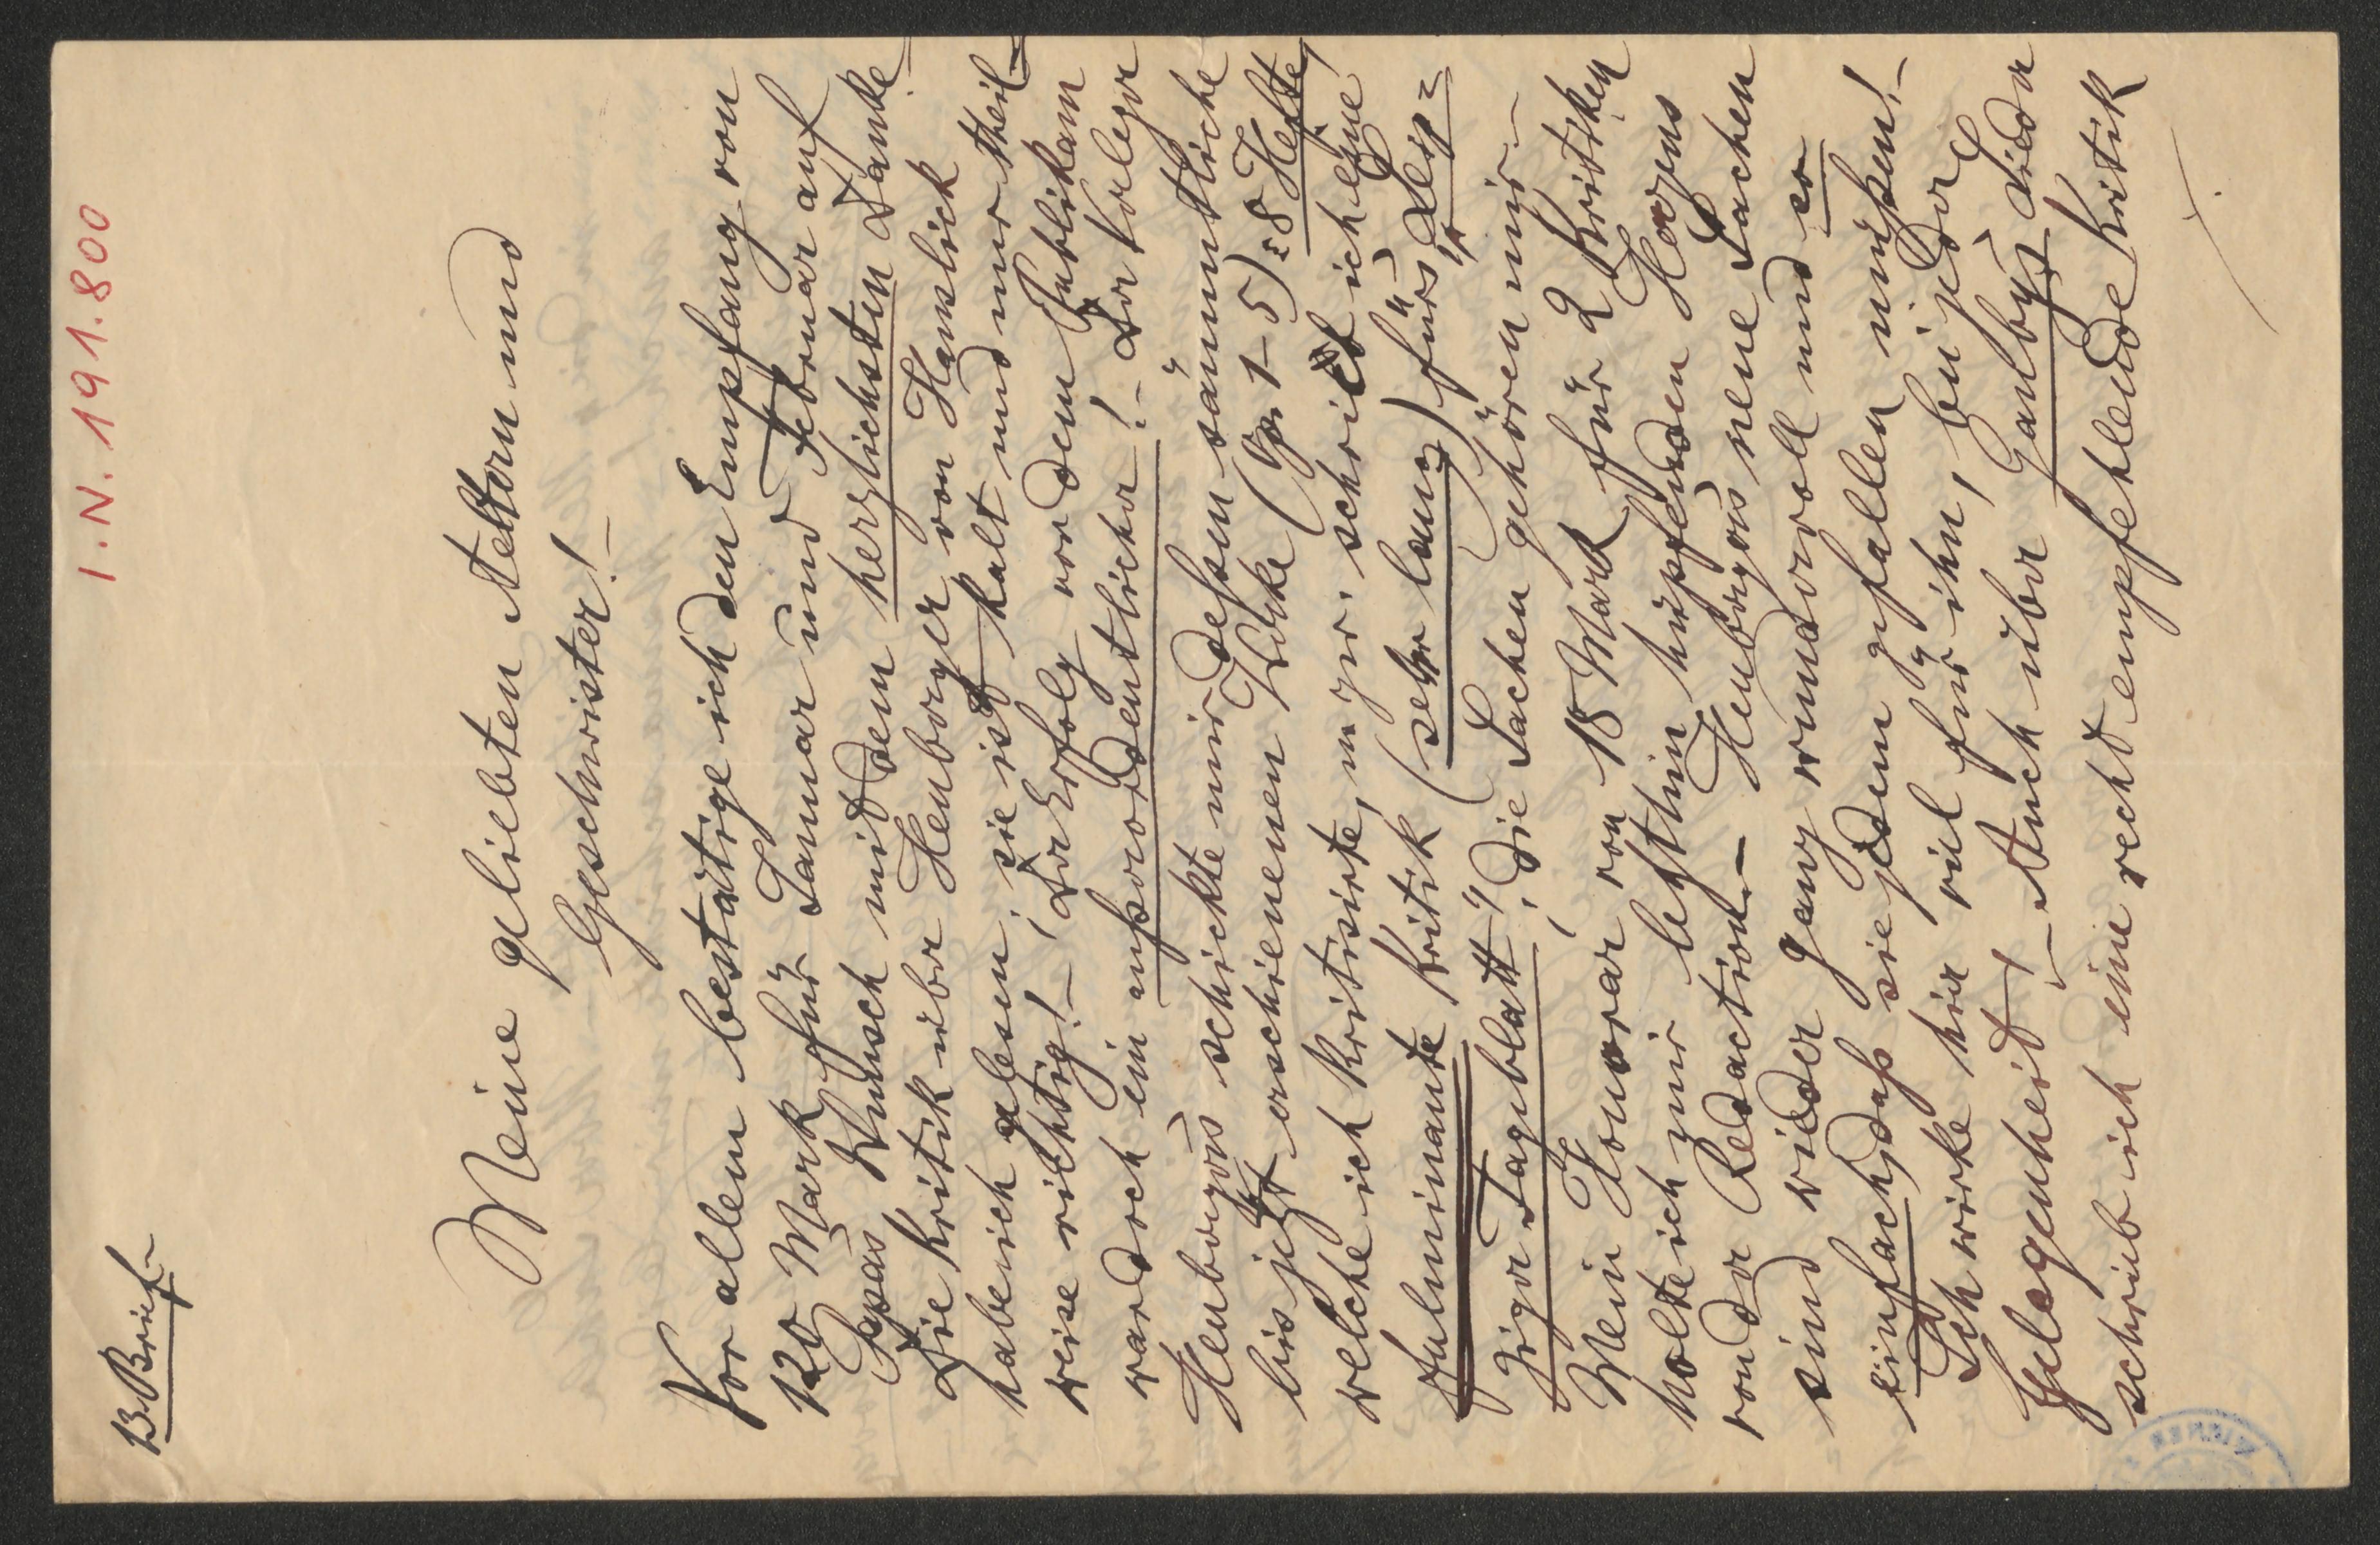 I.N. 191.800
13. Brief
Meine geliebten Aeltern und
Geschwister!
Vor allem bestätige ich den Empfang von
120 Mark für Januar und Februar auf
Papas Wunsch mit dem herzlichsten Danke
Die Kritik über Heuberger von Hanslick
habe ich gelesen; sie ist kalt und nur theil-
weise richtig! – Der Erfolg vor dem Publikum
war doch ein außerordentlicher! – Der Verleger
Heubergers schickte mir dessen sämmtliche
bis jetzt erschienenen Werke (Op. 1–5) = 8 Hefte,
welche ich kritisirte, schrieb ich eine
fulminante Kritik (sehr lang) für's "Leip=
ziger Tageblatt"; die Sachen gehören mir. –
Mein Honorar von 18 Mark für 2 Kritiken
holte ich mir letzthin hüpfenden Herzens
von der Redaction. – Heubergers neue Sachen
sind wieder ganz wundervoll und so
einfach, daß sie jedem gefallen müßen! –
Ich wirke hier viel für ihn, bei jeder
Gelegenheit! – Auch über Gänbys Lieder
schrieb ich eine recht empfehlende Kritik
WIENER